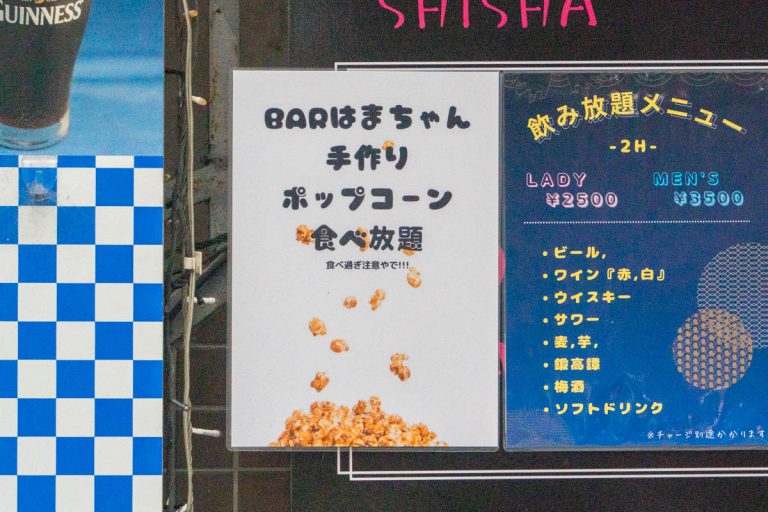 GUINNESS
SHISHA
BARはまちゃん
手作り
ポップコーン
食べ放題
食べ過ぎ注意やで!!!
飲み放題メニュー
-2H-
LADY
¥2500
MEN'S
¥3500
・ビール,
・ワイン『赤,白』
・ウイスキー
・サワー
・麦,芋,
・鍛高譚
・梅酒
・ソフトドリンク
※チャージ別途かかります